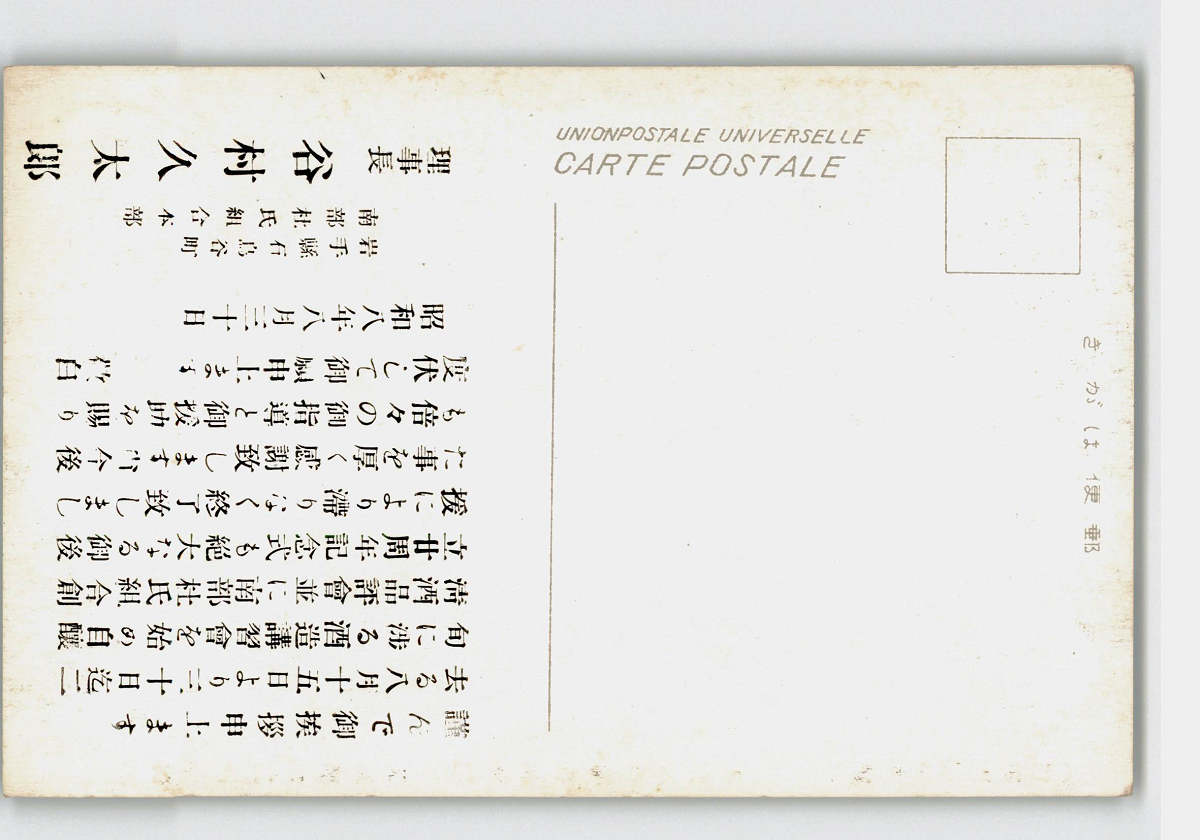 郵便はがき
UNIONPOSTALE UNIVERSELLE
CARTE POSTALE
謹んで御挨拶申上ます
去る八月十五日より三十日迄二
旬に渉る酒造講習會を始め自釀
清酒品評會並に南部杜氏組合創
立廿周年記念式も絶大なる御後
援により滯りなく終了致しまし
た事を厚く感謝致します尚今後
も倍々の御指導と御援助を賜り
度伏して御願申上ます 白
昭和八年八月三十日
岩手縣石鳥谷町
南部杜氏組合本部
理事長 谷村久太郎